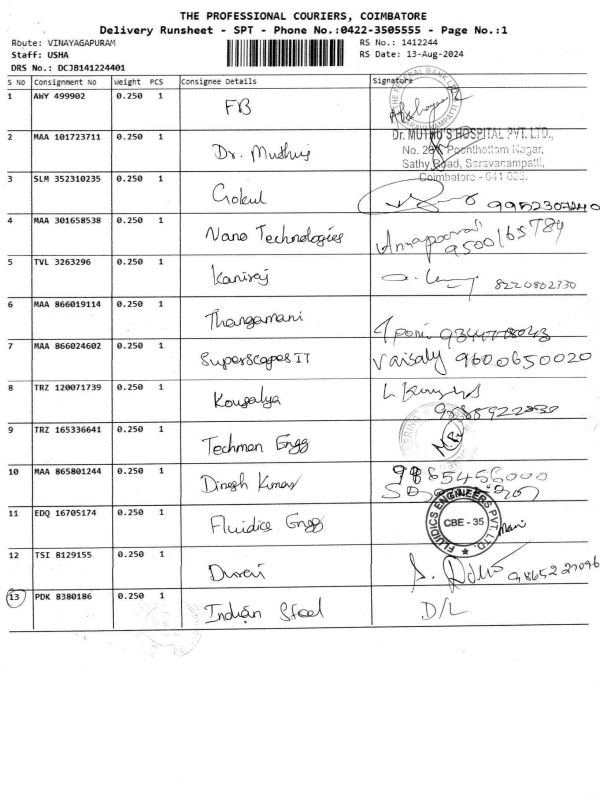 THE PROFESSIONAL COURIERS, COIMBATORE
Delivery Runsheet - SPT - Phone No.:0422-3505555 - Page No.:1
Route: VINAYAGAPURAM RS No.: 1412244
Staff: USHA RS Date: 13-Aug-2024
DRS No.: DCJB141224401
S NO Consignment No Weight PCS Consignee Details Signature
1 AWY 499902 0.250 1 FB
2 MAA 101723711 0.250 1 Dr. Muthus Dr. MUTHU'S HOSPITAL PVT. LTD.,
Poonthottam Nagar,
Sathy Road, Saravanampatti,
Coimbatore - 641 035.
3 SLM 352310235 0.250 1 Gokul
4 MAA 301658538 0.250 1 Nano Technologies Annapoorani
9500165784
5 TVL 3263296 0.250 1 Kaniraj 8220802330
6 MAA 866019114 0.250 1 Thangamani
7 MAA 866024602 0.250 1 SuperscopesIT Vaisaly 9600650020
8 TRZ 120071739 0.250 1 Kousalya
9 TRZ 165336641 0.250 1 Techmen Engg
10 MAA 865801244 0.250 1 Dinesh Kumar
11 EDQ 16705174 0.250 1 Fluidics Engg FLUIDICS ENGINEERS PVT. LTD. CBE - 35 Mani
12 TSI 8129155 0.250 1 Durai
13 PDK 8380186 0.250 1 Indian Steel D/L